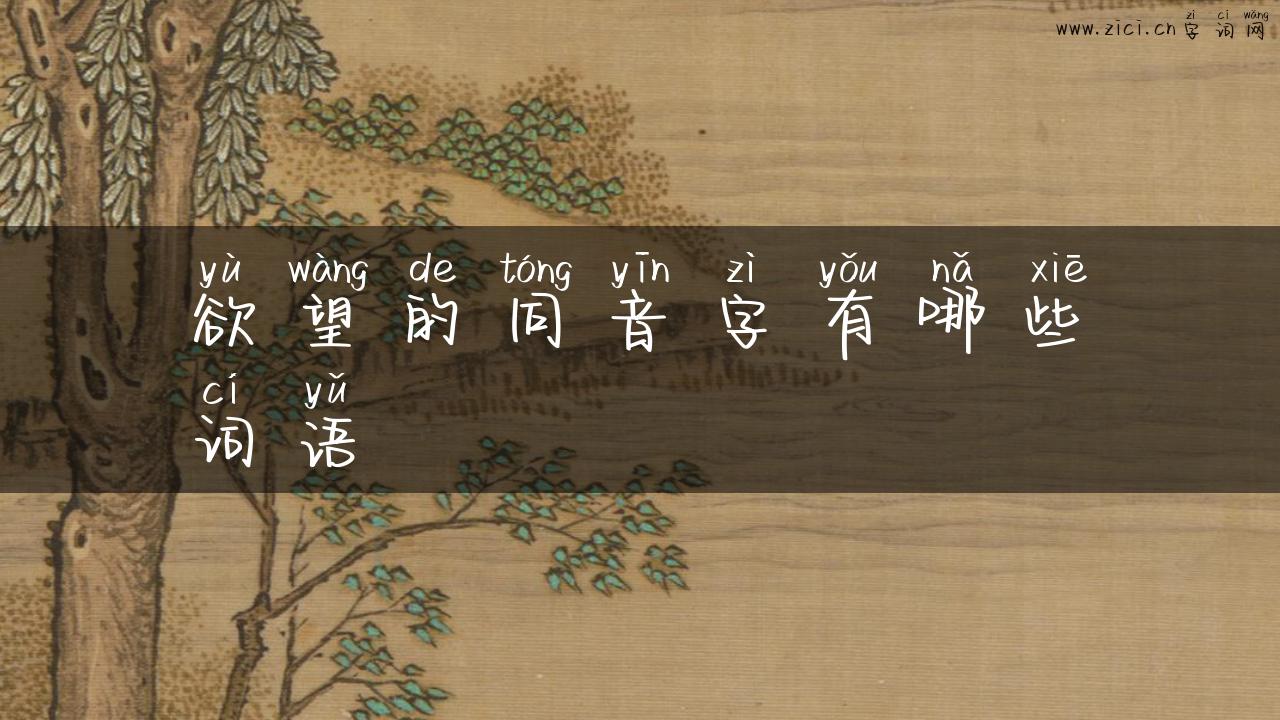 zì cí wǎng
www.zici.cn 字词网
yù wàng de tóng yīn zì yǒu nǎ xiē
欲望的同音字有哪些
cí yǔ
词语